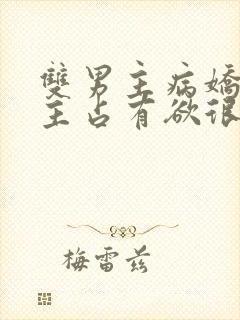 雙男主病嬌
主占有欲很
梅雷茲